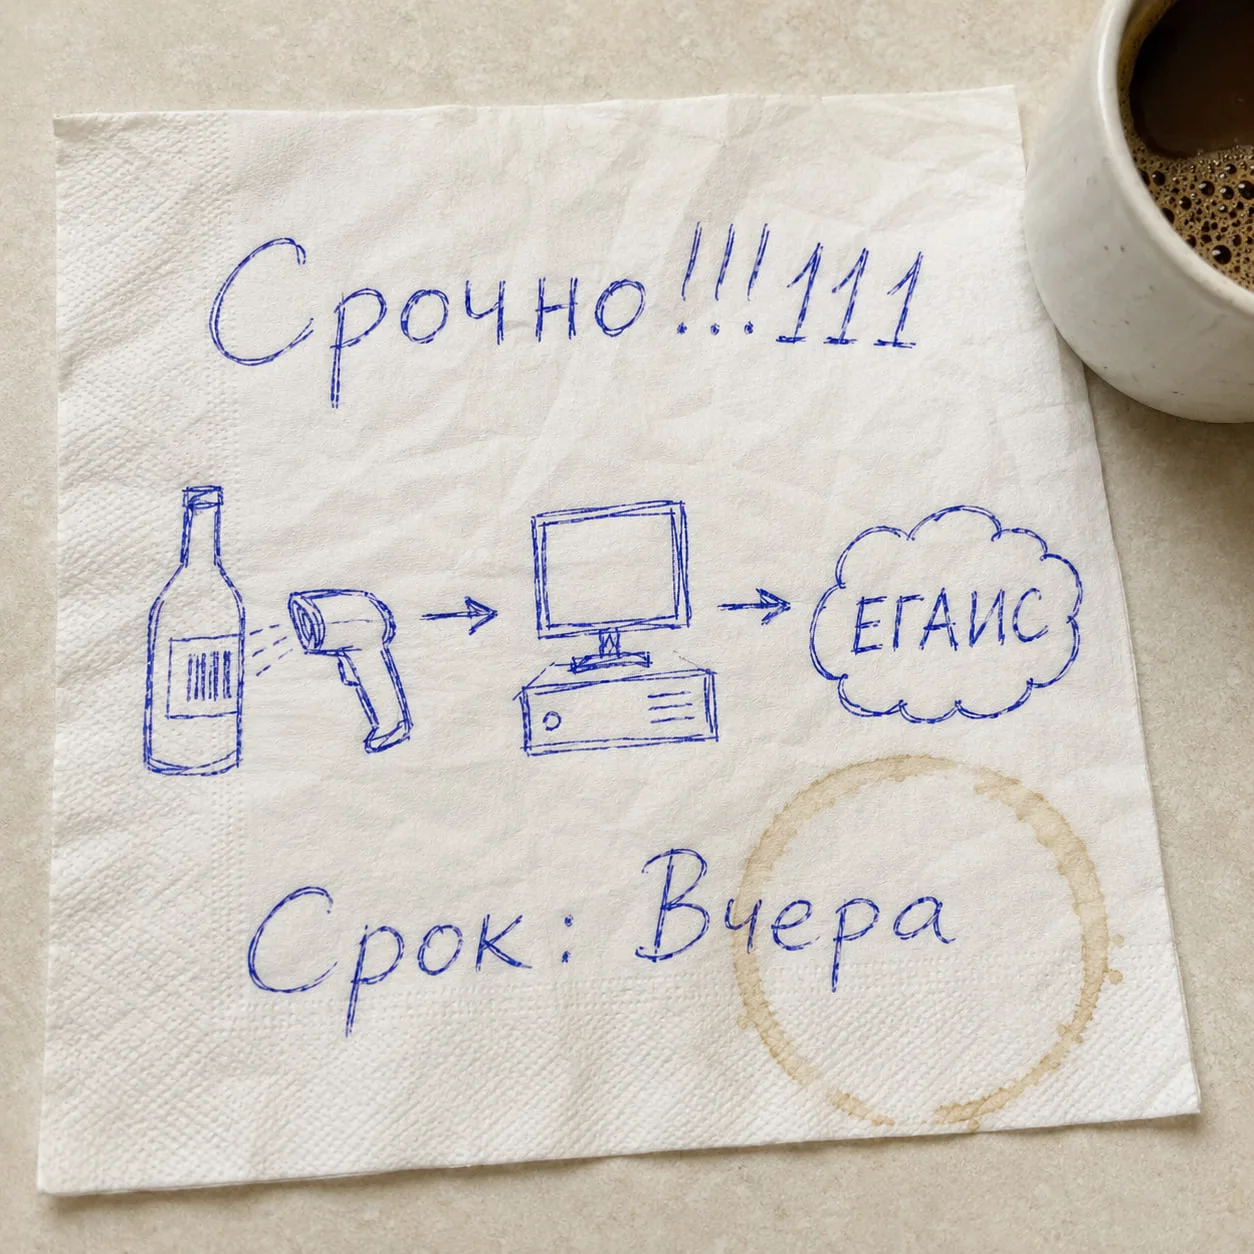 Срочно!!!111
ЕГАИС
Срок: Вчера